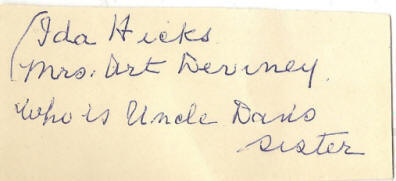 (Ida Hicks
Mrs. Art Deviney.
who is Uncle Dan's
sister